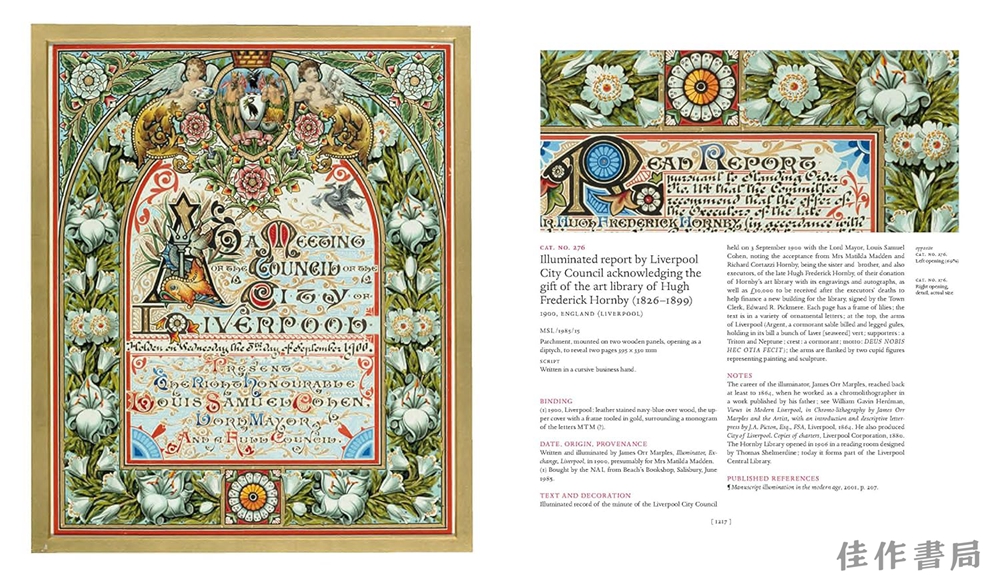 At a Meeting
of the Council of the
City of
Liverpool
Holden on Wednesday the 5th day of September 1900.
Present
The Right Honourable
Louis Samuel Cohen,
Lord Mayor,
And a Full Council.
Read Report
pursuant to Standing Order
No. 114 that the Committee
recommend that the offer of
the Executors of the late
Mr Hugh Frederick Hornby (still in accordance with
CAT. NO. 276
Illuminated report by Liverpool
City Council acknowledging the
gift of the art library of Hugh
Frederick Hornby (1826–1899)
1900, ENGLAND (LIVERPOOL)
MSL/1985/15
Parchment, mounted on two wooden panels, opening as a
diptych, to reveal two pages 395 x 330 mm
SCRIPT
Written in a cursive business hand.
BINDING
(1) 1900, Liverpool: leather stained navy-blue over wood, the up-
per cover with a frame tooled in gold, surrounding a monogram
of the letters MTM (?).
DATE, ORIGIN, PROVENANCE
Written and illuminated by James Orr Marples, Illuminator, Ex-
change, Liverpool, in 1900, presumably for Mrs Matilda Madden.
(1) Bought by the NAL from Beach's Bookshop, Salisbury, June
1985.
TEXT AND DECORATION
Illuminated record of the minute of the Liverpool City Council
held on 5 September 1900 with the Lord Mayor, Louis Samuel
Cohen, noting the acceptance from Mrs Matilda Madden and
Richard Cortazzi Hornby, being the sister and brother, and also
executors, of the late Hugh Frederick Hornby, of their donation
of Hornby's art library with its engravings and autographs, as
well as £10,000 to be received after the executors' deaths to
help finance a new building for the library, signed by the Town
Clerk, Edward R. Pickmere. Each page has a frame of lilies; the
text is in a variety of ornamental letters; at the top, the arms
of Liverpool (Argent, a cormorant sable billed and legged gules,
holding in its bill a bunch of laver [seaweed] vert; supporters: a
Triton and Neptune; crest: a cormorant; motto: DEUS NOBIS
HEC OTIA FECIT); the arms are flanked by two cupid figures
representing painting and sculpture.
NOTES
The career of the illuminator, James Orr Marples, reached back
at least to 1864, when he worked as a chromolithographer in
a work published by his father; see William Gavin Herdman,
Views in Modern Liverpool, in Chromo-lithography by James Orr
Marples and the Artist, with an introduction and descriptive letter-
press by J.A. Picton, Esq., FSA, Liverpool, 1864. He also produced
City of Liverpool: Copies of charters, Liverpool Corporation, 1880.
The Hornby Library opened in 1906 in a reading room designed
by Thomas Shelmerdine; today it forms part of the Liverpool
Central Library.
PUBLISHED REFERENCES
¶ Manuscript illumination in the modern age, 2001, p. 207.
opposite
CAT. NO. 276.
Left opening (10%)
CAT. NO. 276.
Right opening,
detail, actual size
[ 1217 ]
佳作書局